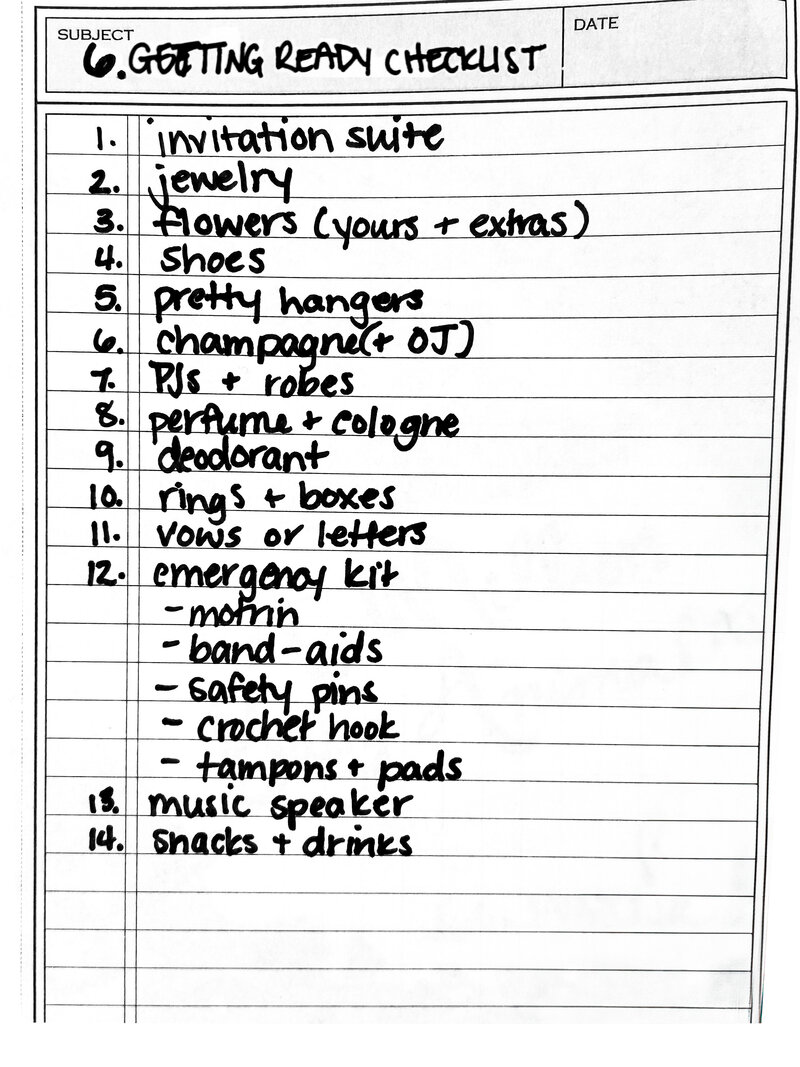 SUBJECT
DATE
6. GETTING READY CHECKLIST
1. invitation suite
2. jewelry
3. flowers (yours + extras)
4. shoes
5. pretty hangers
6. champagne(+ OJ)
7. PJs + robes
8. perfume + cologne
9. deodorant
10. rings + boxes
11. vows or letters
12. emergency kit
- motrin
- band-aids
- safety pins
- crochet hook
- tampons + pads
13. music speaker
14. snacks + drinks